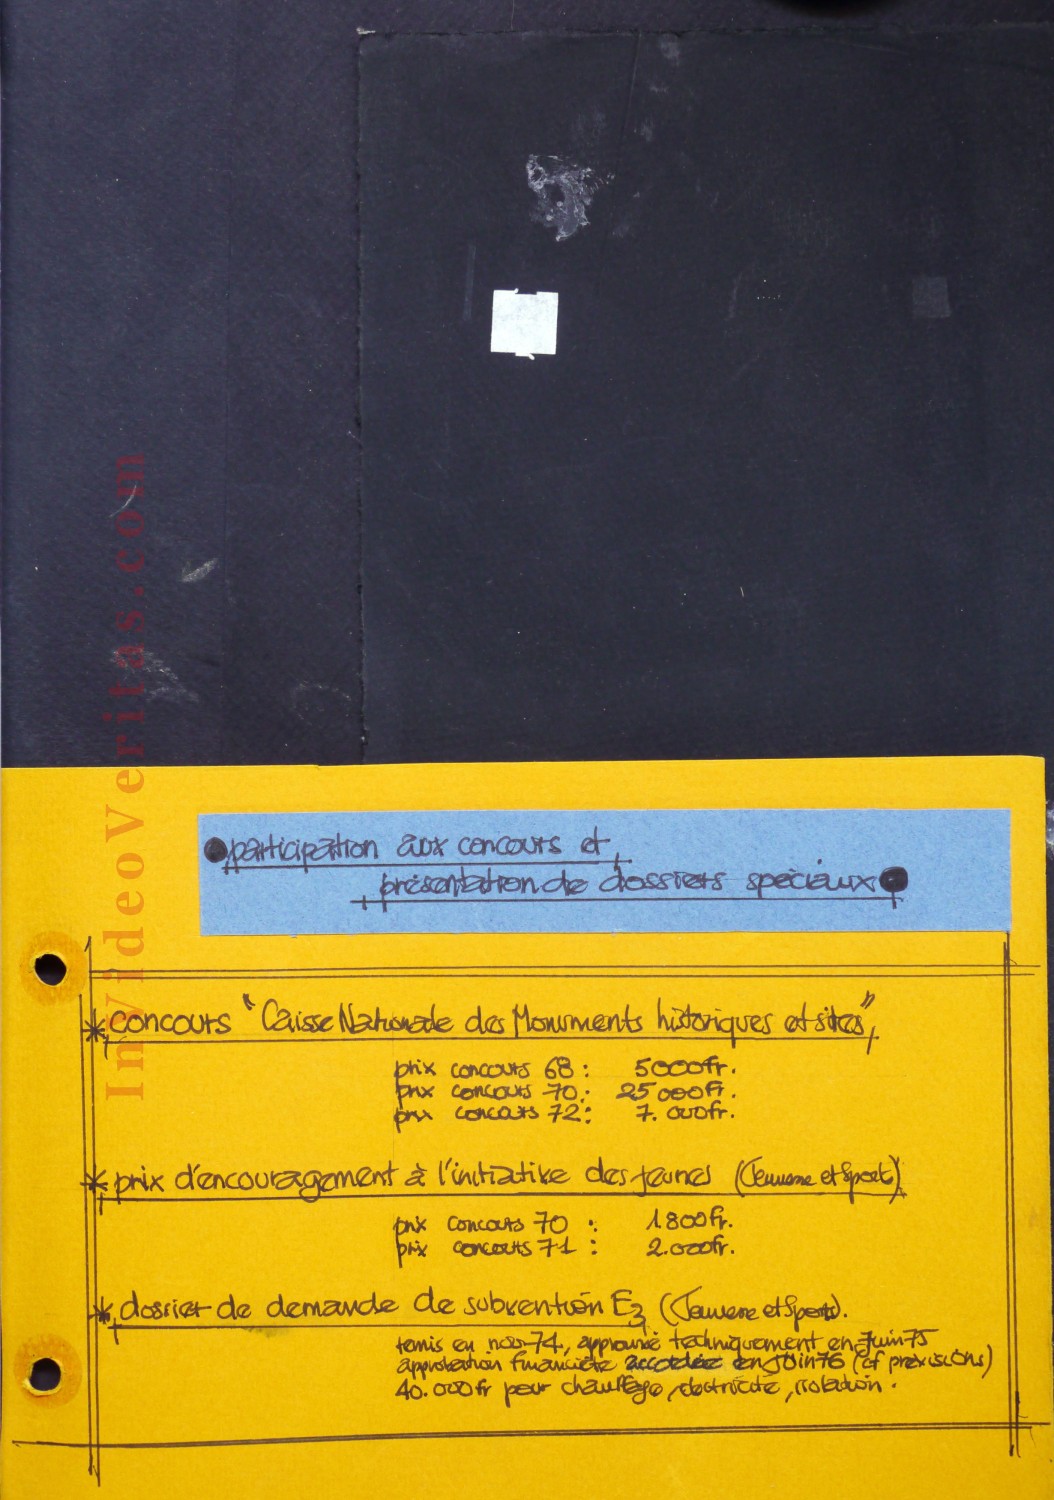 participation aux concours et
présentation de dossiers spéciaux
* concours "Caisse Nationale des Monuments historiques et sites"
prix concours 68 : 5000fr.
prix concours 70 : 25000fr.
prix concours 72 : 7.000fr.
* prix d'encouragement à l'initiative des jeunes (Jeunesse et Sports)
prix concours 70 : 1800fr.
prix concours 71 : 2.000fr.
* dossier de demande de subvention E3 (Jeunesse et Sports).
remis en nov 74, approuvé techniquement en Juin 75
approbation financière accordée en Juin 76 (cf prévisions)
40.000fr pour chauffage, électricité, isolation.
InVideoVeritas.com